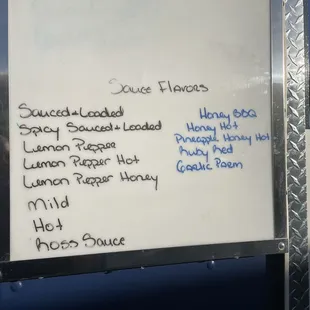 Sauce Flavors
Sauced & Loaded
Spicy Sauced & Loaded
Lemon Pepper
Lemon Pepper Hot
Lemon Pepper Honey
Mild
Hot
Ross Sauce
Honey BBQ
Honey Hot
Pineapple Honey Hot
Ruby Red
Garlic Parm